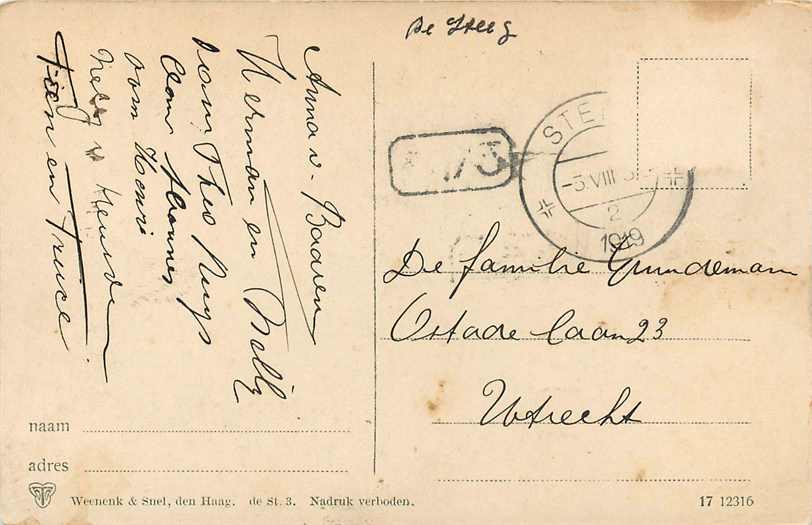 De Steeg
Anna v. Baaren
Herman en Betty
Oom Theo Ruys
Oom Henri
Neef v
Fien en Truce
STE
-3.VIII
2
1919
De familie Grundemann
Ostade laan 23
Utrecht
naam
adres
Weenenk & Snel, den Haag. de St. 3. Nadruk verboden.
17 12316